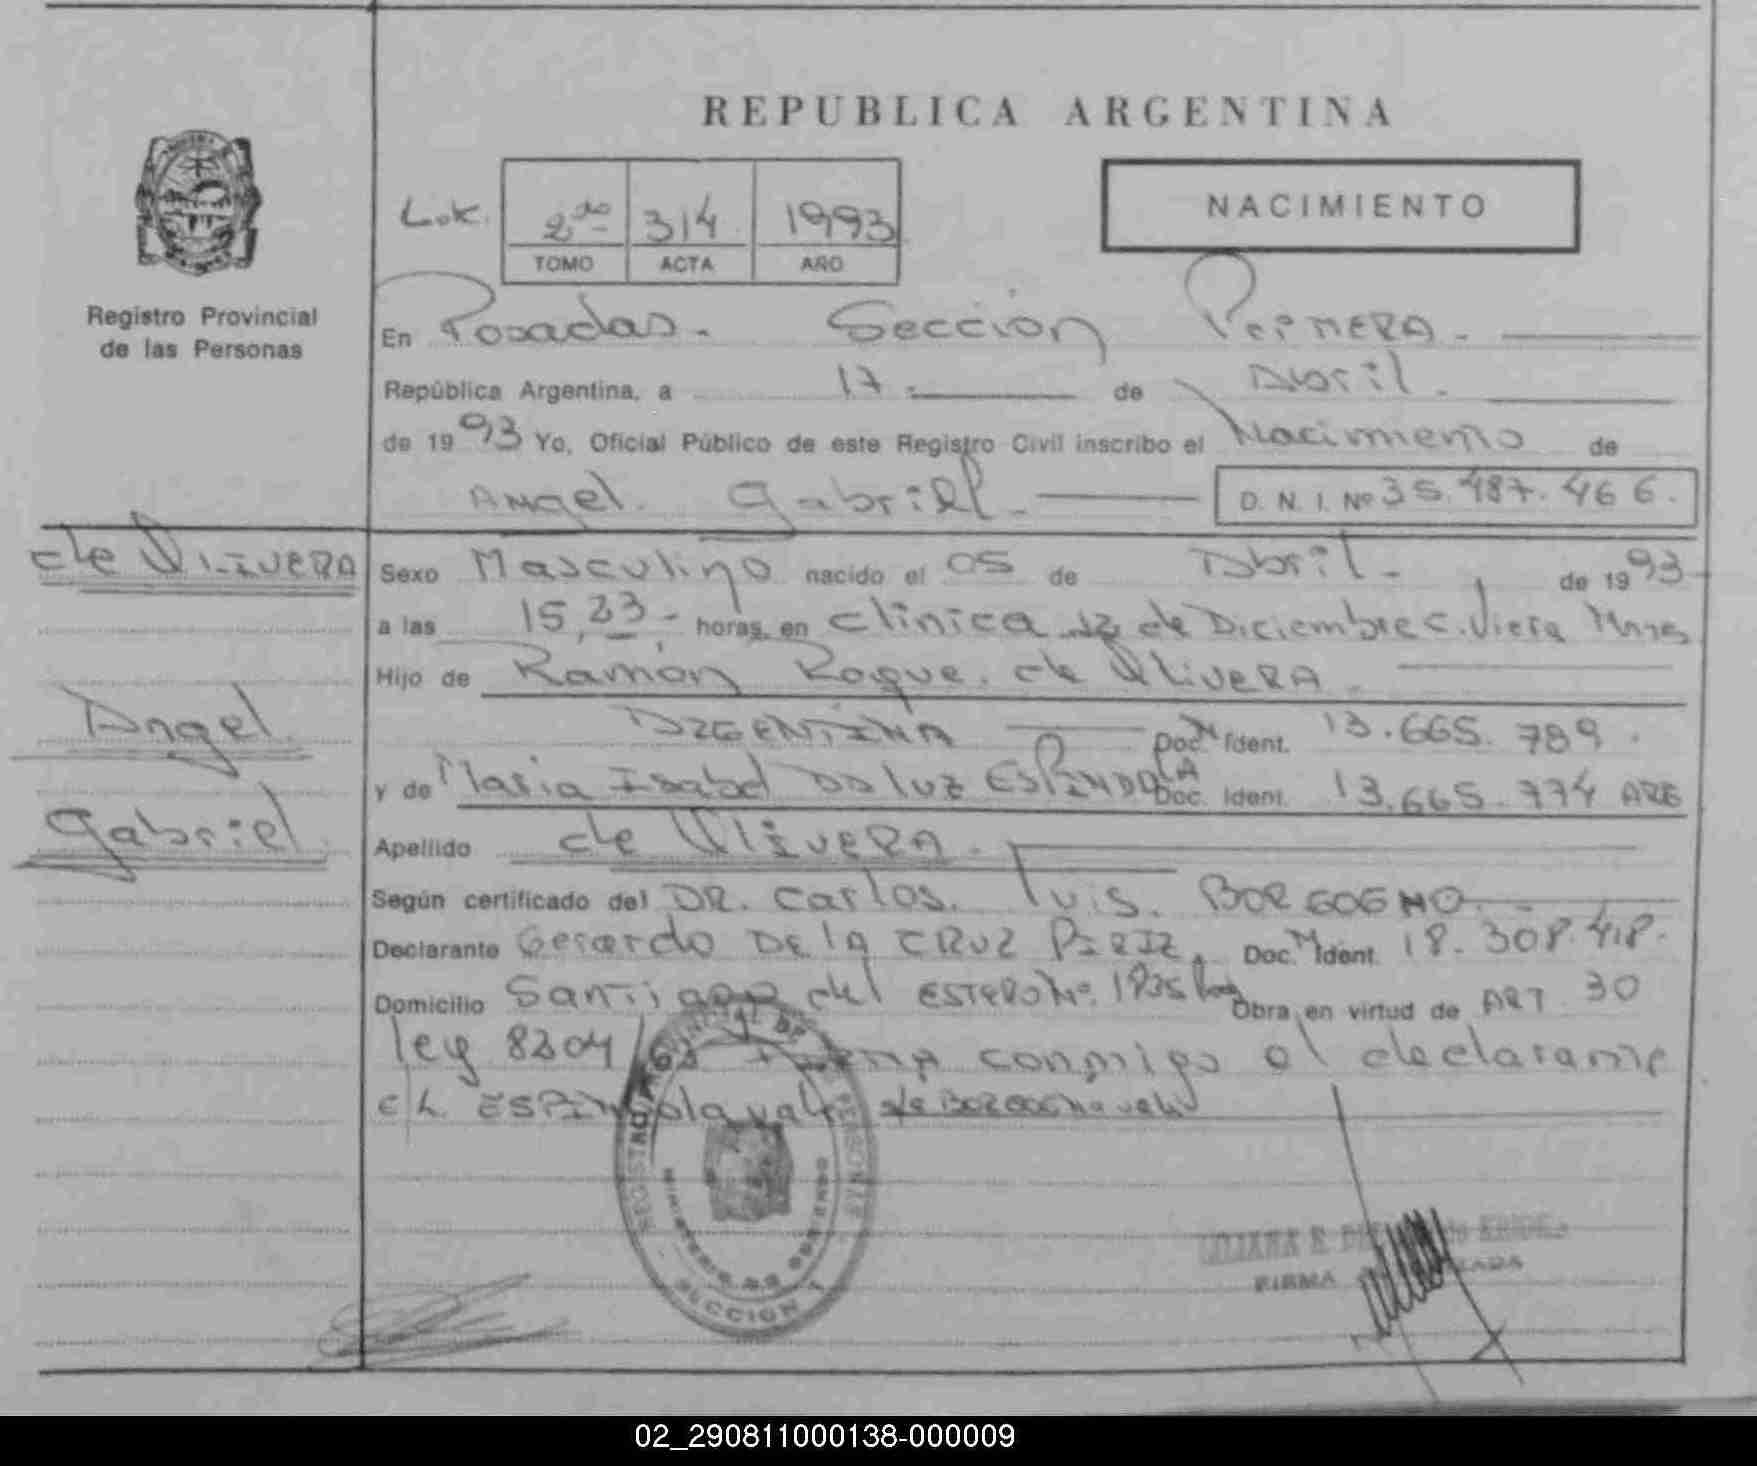 REPUBLICA ARGENTINA
NACIMIENTO
2do 314 1993
TOMO ACTA AÑO
Registro Provincial
de las Personas
En Posadas. Sección Primera.
República Argentina, a 17 de Abril.
de 1993 Yo, Oficial Público de este Registro Civil inscribo el Nacimiento de
Angel Gabriel. D. N. I. Nº 35.487.466.
de Olivera
Angel
Gabriel
Sexo Masculino nacido el 05 de Abril. de 1993
a las 15,23 horas, en Clinica 12 de Diciembre C. Viera
Hijo de Ramón Roque de Olivera
Argentina Doc. Ident. 13.665.789.
y de Maria Isabel Da luz Espindola Doc. Ident. 13.665.774 ARG
Apellido de Olivera.
Según certificado del DR. Carlos Luis. BORGOGNO
Declarante Gerardo DE la CRUZ PIRIZ. Doc. Ident. 18.308.418.
Domicilio Santiago del ESTERO Nº 1835 Obra en virtud de ART 30
ley 8204 Firma conmigo el declarante
E/L. ESPINdola vale s/r BORGOGNO vale
REGISTRO PROVINCIAL DE LAS PERSONAS
MINISTERIO DE GOBIERNO
SECCION 1
FIRMA AUTORIZADA
02_290811000138-000009